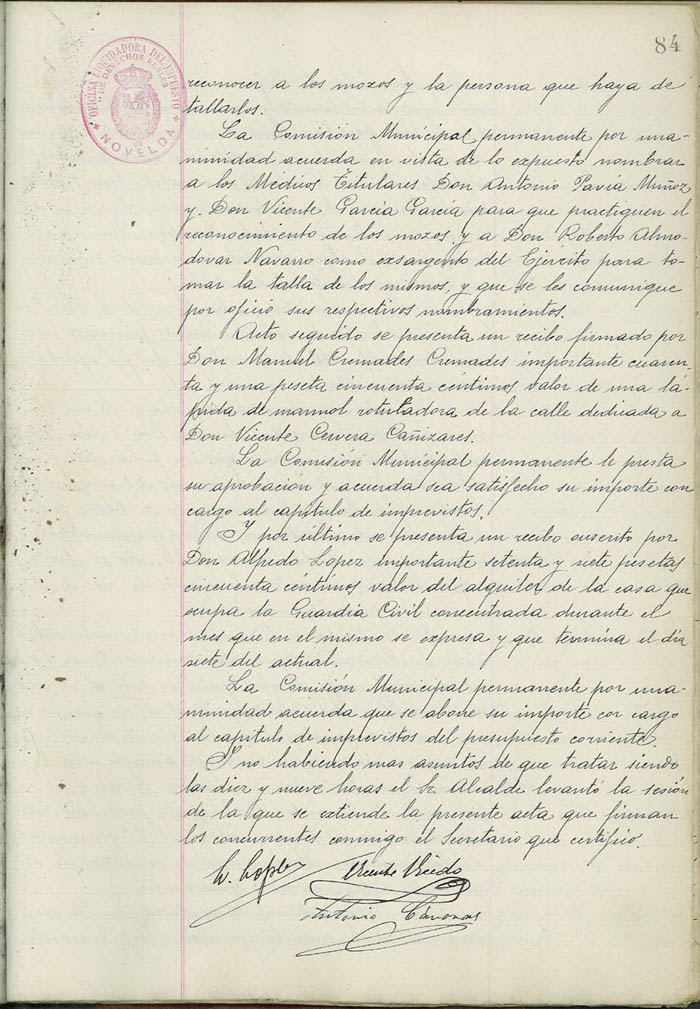 84
OFICINA LIQUIDADORA DEL IMPUESTO
DE DERECHOS REALES
NOVELDA
reconocer a los mozos y la persona que haya de
tallarlos.
La Comisión Municipal permanente por una-
nimidad acuerda en vista de lo expuesto nombrar
a los Médicos Titulares Don Antonio Pavia Muñoz
y Don Vicente García García para que practiquen el
reconocimiento de los mozos y a Don Roberto Almo-
dovar Navarro como exsargento del Ejército para to-
mar la talla de los mismos, y que se les comunique
por oficio sus respectivos nombramientos.
Acto seguido se presenta un recibo firmado por
Don Manuel Cremades Cremades importante cuaren-
ta y una peseta cincuenta céntimos valor de una lá-
pida de marmol rotuladora de la calle dedicada a
Don Vicente Cervera Cañizares.
La Comisión Municipal permanente le presta
su aprobación y acuerda sea satisfecho su importe con
cargo al capitulo de imprevistos.
Y por último se presenta un recibo suscrito por
Don Alfredo Lopez importante setenta y siete pesetas
cincuenta céntimos valor del alquiler de la casa que
ocupa la Guardia Civil concentrada durante el
mes que en el mismo se expresa y que termina el dia
siete del actual.
La Comisión Municipal permanente por una-
nimidad acuerda que se abone su importe con cargo
al capitulo de imprevistos del presupuesto corriente.
Y no habiendo mas asuntos de que tratar siendo
las diez y nueve horas el Sr. Alcalde levantó la sesión
de la que se extiende la presente acta que firman
los concurrentes conmigo el Secretario que certifico.
Lopez Vicente
Antonio Cánovas